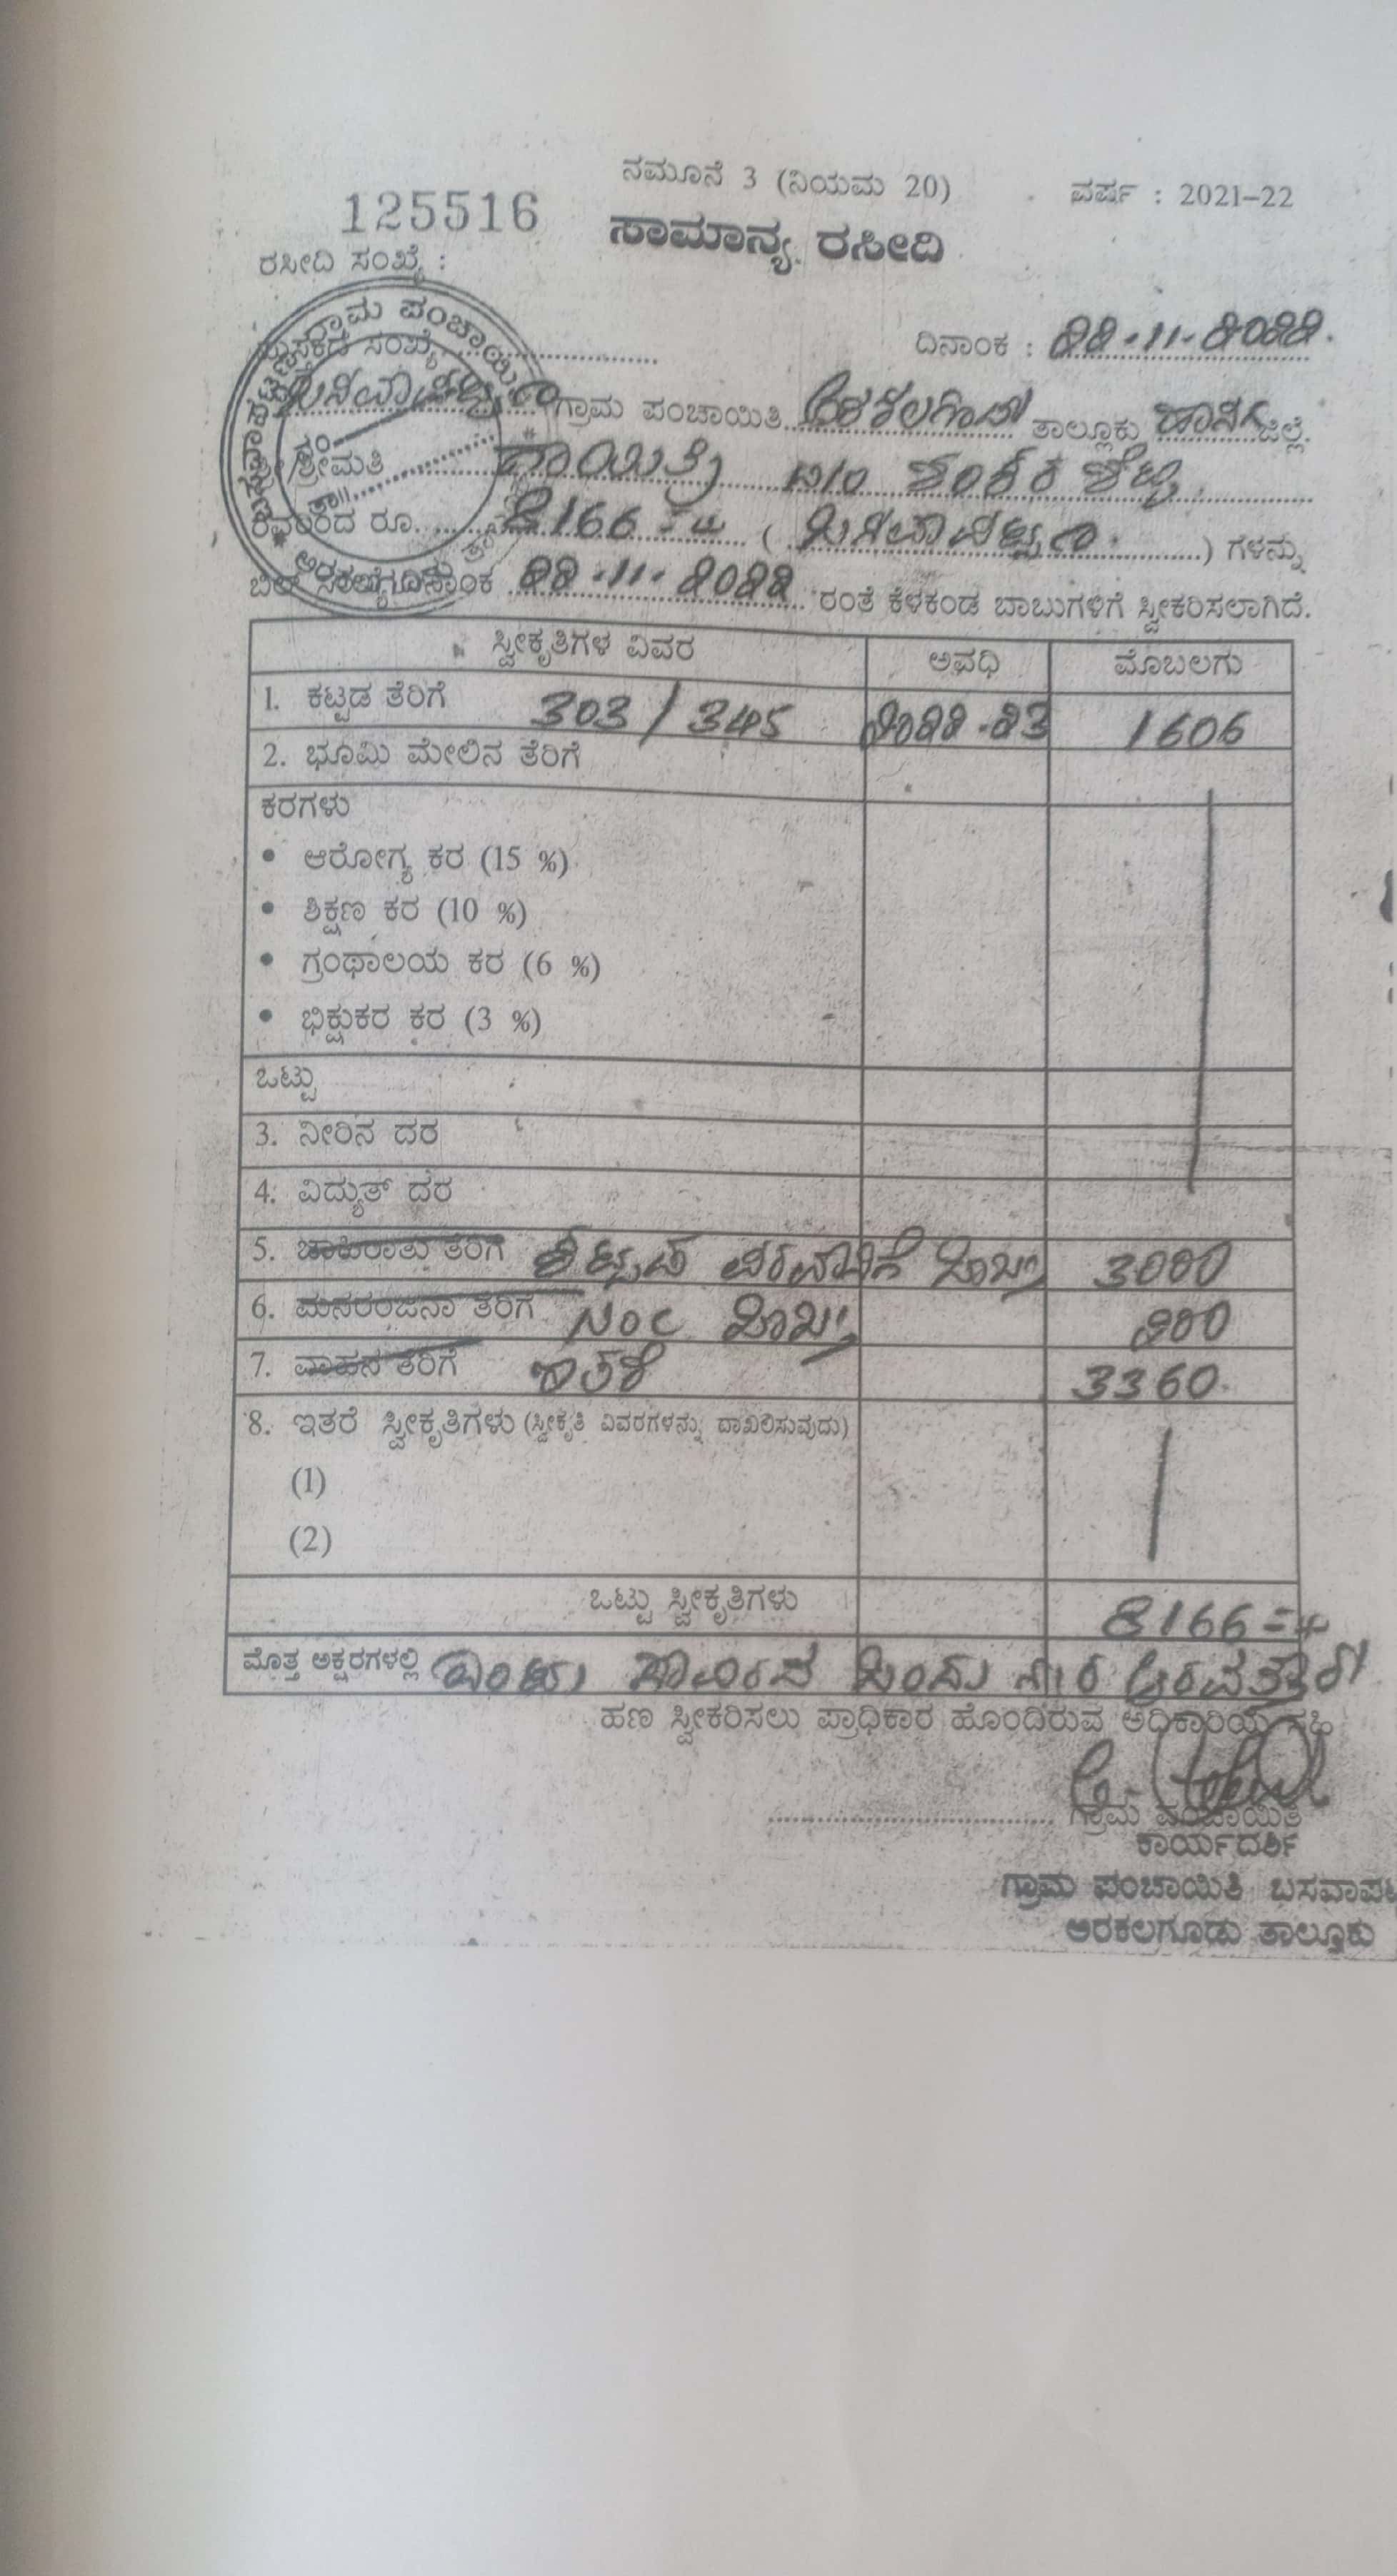 ನಮೂನೆ 3 (ನಿಯಮ 20)
ವರ್ಷ : 2021-22
125516
ಸಾಮಾನ್ಯ ರಸೀದಿ
ರಸೀದಿ ಸಂಖ್ಯೆ :
ಗ್ರಾಮ ಪಂಚಾಯಿ
ಪುಸ್ತಕದ ಸಂಖ್ಯೆ
ದಿನಾಂಕ : 22.11.2022.
ಬಸವಾಪಟ್ಟಣ ಗ್ರಾಮ ಪಂಚಾಯಿತಿ ಅರಕಲಗೂಡು ತಾಲ್ಲೂಕು ಹಾಸನ ಜಿಲ್ಲೆ.
ಶ್ರೀ/ಶ್ರೀಮತಿ ಗಾಯಿತ್ರಿ ಶಂಕರ ಶೆಟ್ಟಿ
ರವರಿಂದ ರೂ. 8166 ( ಬಸವಾಪಟ್ಟಣ ) ಗಳನ್ನು
22.11.2022 ರಂತೆ ಕೆಳಕಂಡ ಬಾಬುಗಳಿಗೆ ಸ್ವೀಕರಿಸಲಾಗಿದೆ.
ಸ್ವೀಕೃತಿಗಳ ವಿವರ ಅವಧಿ ಮೊಬಲಗು
1. ಕಟ್ಟಡ ತೆರಿಗೆ 303 / 345 2022-23 1606
2. ಭೂಮಿ ಮೇಲಿನ ತೆರಿಗೆ
ಕರಗಳು
• ಆರೋಗ್ಯ ಕರ (15 %)
• ಶಿಕ್ಷಣ ಕರ (10 %)
• ಗ್ರಂಥಾಲಯ ಕರ (6 %)
• ಭಿಕ್ಷುಕರ ಕರ (3 %)
ಒಟ್ಟು
3. ನೀರಿನ ದರ
4. ವಿದ್ಯುತ್ ದರ
5. ಜಾಹಿರಾತು ತೆರಿಗೆ ಕಟ್ಟಡ ಪರವಾನಿಗೆ 3000
6. ಮನರಂಜನಾ ತೆರಿಗೆ NOC 200
7. ವಾಹನ ತೆರಿಗೆ ಇತರೆ 3360
8. ಇತರೆ ಸ್ವೀಕೃತಿಗಳು (ಸ್ವೀಕೃತಿ ವಿವರಗಳನ್ನು ದಾಖಲಿಸುವುದು)
(1)
(2)
ಒಟ್ಟು ಸ್ವೀಕೃತಿಗಳು 8166
ಮೊತ್ತ ಅಕ್ಷರಗಳಲ್ಲಿ ಎಂಟು ಸಾವಿರದ ಒಂದು ನೂರ ಅರವತ್ತಾರು
ಹಣ ಸ್ವೀಕರಿಸಲು ಪ್ರಾಧಿಕಾರ ಹೊಂದಿರುವ ಅಧಿಕಾರಿಯ ಸಹಿ
ಗ್ರಾಮ ಪಂಚಾಯಿತಿ
ಕಾರ್ಯದರ್ಶಿ
ಗ್ರಾಮ ಪಂಚಾಯಿತಿ ಬಸವಾಪಟ
ಅರಕಲಗೂಡು ತಾಲ್ಲೂಕು